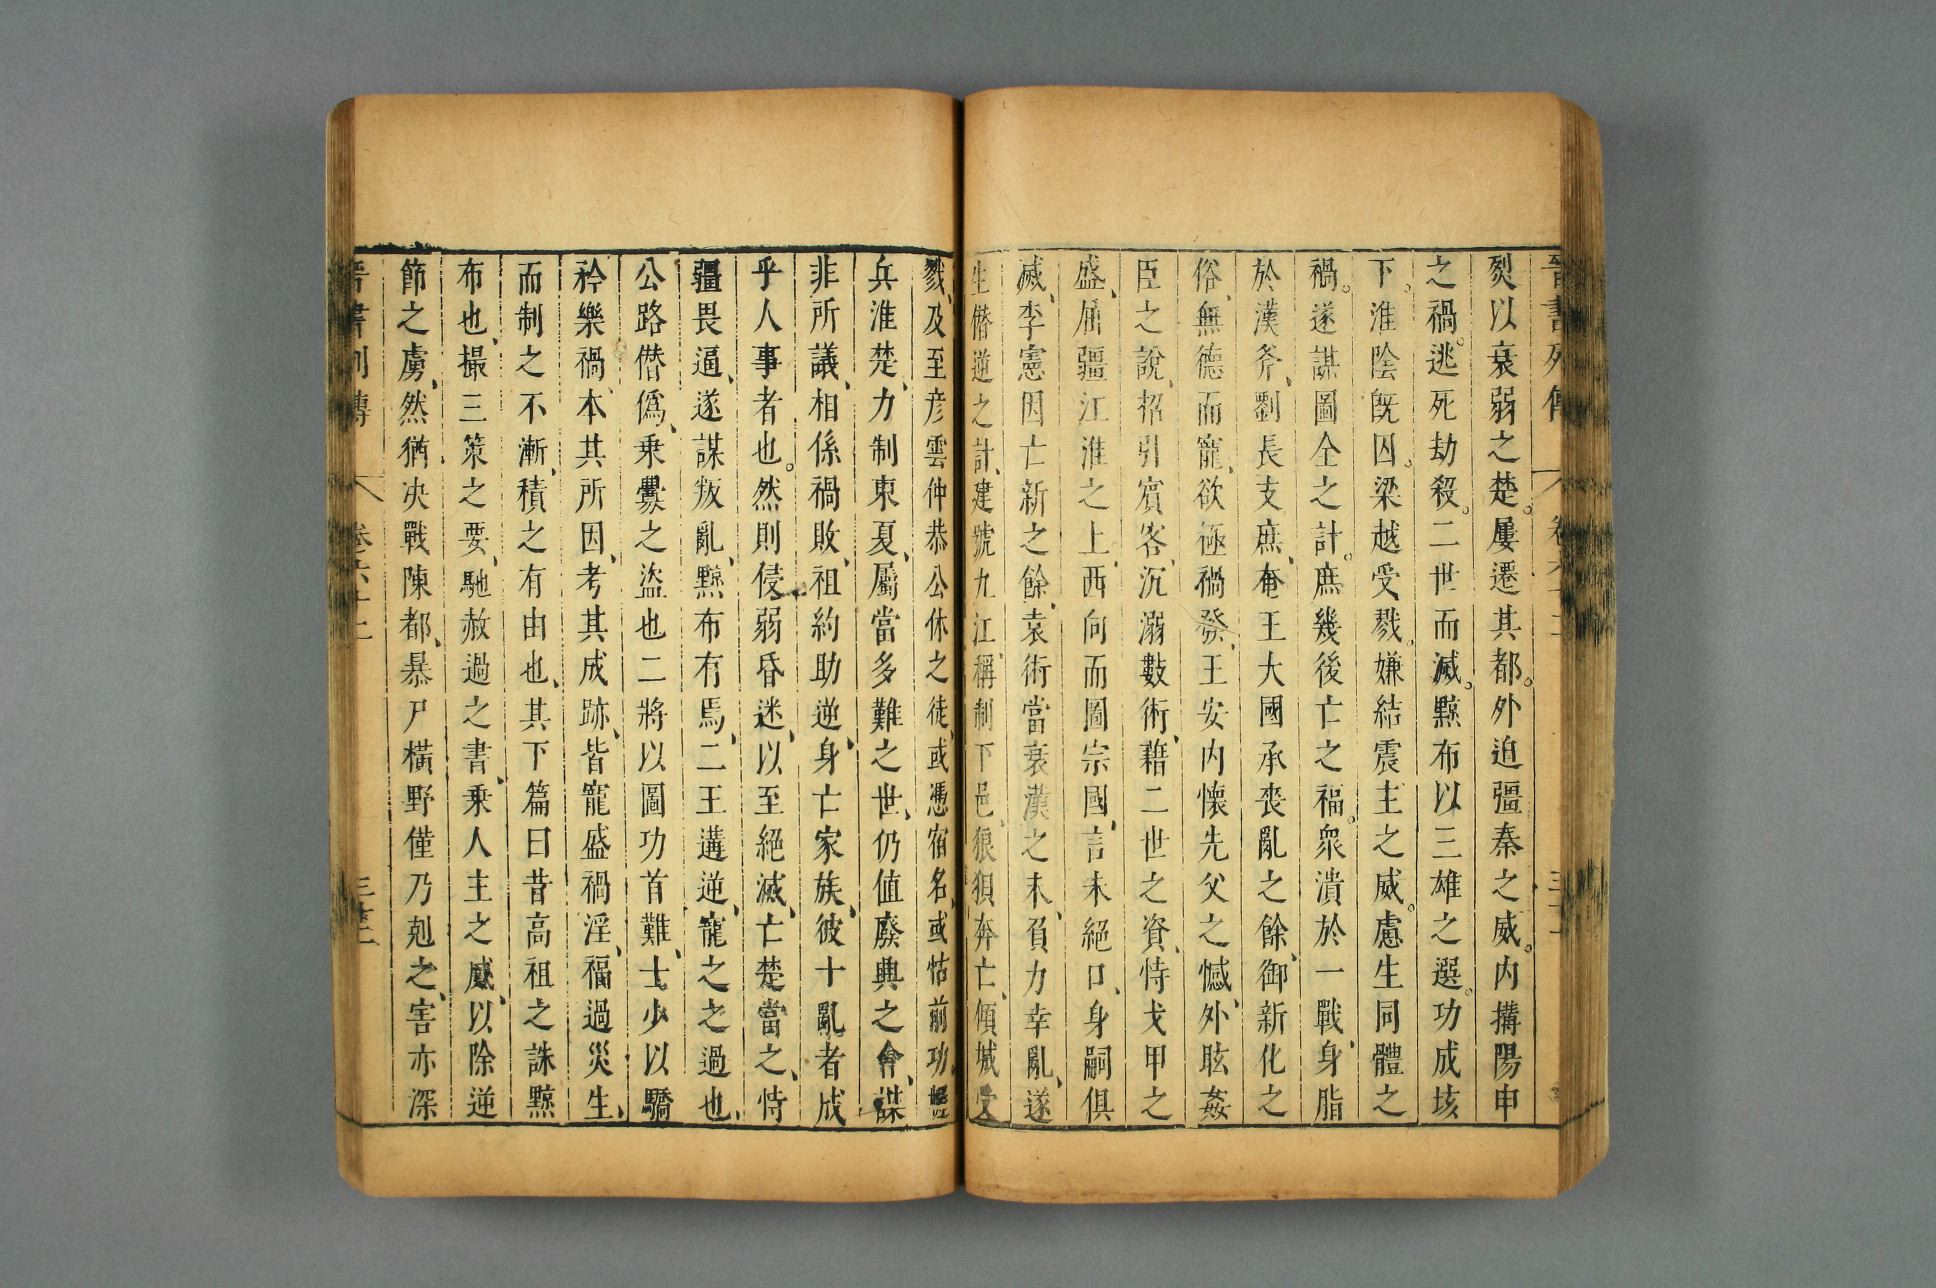 裂以衰弱之楚。屢遷其都。外迫彊秦之威。內搆陽申
之禍。逃死劫殺。二世而滅。黥布以三雄之選。功成垓
下。淮陰旣囚。梁越受戮。嫌結震主之威。慮生同體之
禍。遂謀圖全之計。庶幾後亡之福。衆潰於一戰、身脂
於漢斧、劉長支庶、奄王大國承喪亂之餘、御新化之
俗、無德而寵、欲極禍發、王安內懷先父之憾、外眩姦
臣之說、招引賓客、沉溺數術、藉二世之資、恃戈甲之
盛、屈彊江淮之上、西向而圖宗國、言未絕口、身嗣俱
滅、李憲因亡新之餘、袁術當衰漢之末、負力幸亂、遂
生僭逆之計、建號九江、稱制下邑、狼狽奔亡、傾城受
戮、及至彦雲仲恭公休之徒、或憑宿名、或怙前功、握
兵淮楚、力制東夏、屬當多難之世、仍値廢興之會、謀
非所議、相係禍敗、祖約助逆、身亡家族、彼十亂者成
乎人事者也。然則侵弱昏迷、以至絕滅、亡楚當之、恃
彊畏逼、遂謀叛亂、黥布有焉、二王遘逆、寵之之過也、
公路僭僞、乗釁之盜也二將以圖功首難、士少以驕
矜樂禍、本其所因、考其成跡、皆寵盛禍淫、福過災生、
而制之不漸、積之有由也、其下篇曰昔高祖之誅黥
布也、撮三策之要、馳赦過之書、乗人主之威、以除逆
節之虜、然猶決戰陳都、暴尸橫野僅乃剋之、害亦深
晉書列傳